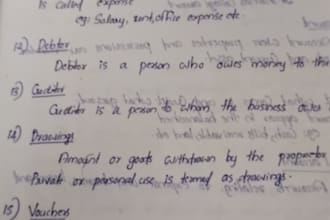 is called expense
eg: Salary, rent, office expense etc.
12) Debtor
Debtor is a person who owes money to the
13) Creditor
Creditor is a person to whom, the business owes
14) Drawings
Amount or goods withdrawn by the proprietor
Private or personal use is termed as drawings.
15) Vouchers